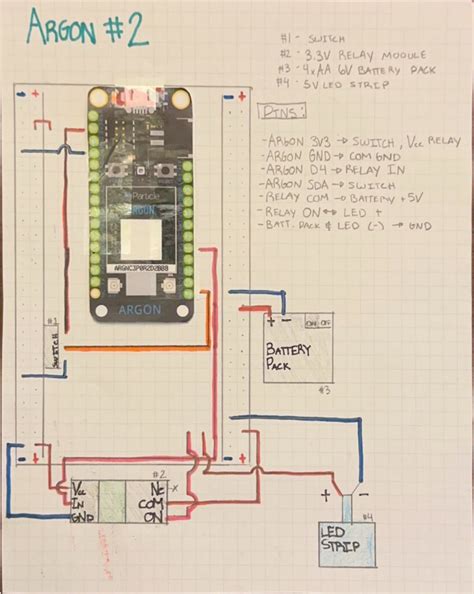 ARGON #2
#1 - SWITCH
#2 - 3.3V RELAY MODULE
#3 - 4xAA 6V BATTERY PACK
#4 - 5V LED STRIP
PINS:
-ARGON 3V3 → SWITCH, Vcc RELAY
-ARGON GND → COM GND
-ARGON D4 → RELAY IN
-ARGON SDA → SWITCH
-RELAY COM → BATTERY +5V
-RELAY ON ↔ LED +
-BATT. PACK & LED (-) → GND
Particle
ARGON
ARGON
#1
SWITCH
+ -
ON OFF
BATTERY
PACK
#3
- +
- +
#2
Vcc
IN
GND
NC
COM
ON
x
+ -
#4
LED
STRIP